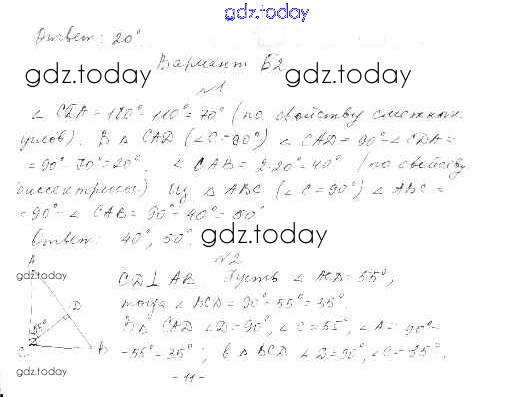 gdz.today
Ответ: 20°.
Вариант Б2
gdz.today gdz.today
№1
∠ CDA = 180° - 110° = 70° (по свойству смежных
углов). В Δ CAD (∠C = 90°) ∠ CAD = 90° - ∠ CDA =
= 90° - 70° = 20°. ∠ CAB = 2·20° = 40° (по свойству
биссектрисы) Из Δ ABC (∠ C = 90°) ∠ ABC =
= 90° - ∠ CAB = 90° - 40° = 50°
Ответ: 40°, 50°. gdz.today
№2
A
gdz.today
CD ⊥ AB. Пусть ∠ ACD = 55°,
тогда ∠ BCD = 90° - 55° = 35°.
D
55°
В Δ CAD ∠D = 90°, ∠ C = 55°, ∠ A = 90° -
C B
- 55° = 35°; в Δ BCD ∠ D = 90°, ∠ C = 35°,
gdz.today
- 11 -